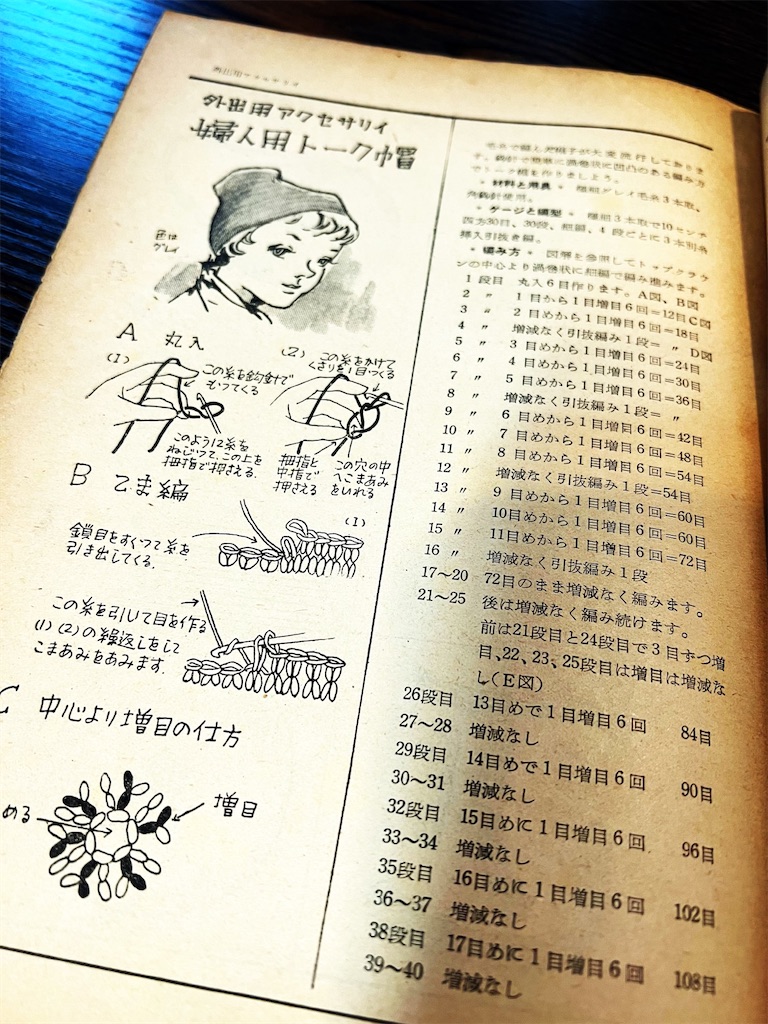 外出用アクセサリイ
外出用アクセサリイ
婦人用トーク帽
色は
グレイ
A 丸入
(1)
この糸を鈎針で
もつてくる
このように糸を
ねじつて、この上を
拇指で押さえる.
(2)
この糸をかけて
くさりを1目つくる
拇指と
中指で
押さえる
この穴の中
へこまあみ
をいれる
B こま編
(1)
鎖目をすくつて糸を
引き出してくる.
この糸を引いて目を作る
(1)(2)の繰返しをして
こまあみをあみます.
C 中心より増目の仕方
める
増目
毛糸で編んだ帽子が大変流行しておりま
す。鈎針で簡単に渦巻状に凹凸のある編み方
でトーク帽を作りましょう。
・材料と用具・ 極細グレイ毛糸3本取、
角鈎針使用。
・ゲージと編型・ 極細3本取で10センチ
四方30目、30段、細編、4段ごとに3本別糸
挿入引抜き編。
・編み方・ 図解を参照してトップクラウ
ンの中心より渦巻状に細編で編み進みます。
1段目 丸入6目作ります。A図、B図
2 〃 1目から1目増目6回=12目C図
3 〃 2目めから1目増目6回=18目
4 〃 増減なく引抜編み1段= 〃 D図
5 〃 3目めから1目増目6回=24目
6 〃 4目めから1目増目6回=30目
7 〃 5目めから1目増目6回=36目
8 〃 増減なく引抜編み1段= 〃
9 〃 6目めから1目増目6回=42目
10 〃 7目めから1目増目6回=48目
11 〃 8目めから1目増目6回=54目
12 〃 増減なく引抜編み1段=54目
13 〃 9目めから1目増目6回=60目
14 〃 10目めから1目増目6回=60目
15 〃 11目めから1目増目6回=72目
16 〃 増減なく引抜編み1段
17～20 72目のまま増減なく編みます。
21～25 後は増減なく編み続けます。
前は21段目と24段目で3目ずつ増
目、22、23、25段目は増目は増減な
し(E図)
26段目 13目めで1目増目6回 84目
27～28 増減なし
29段目 14目めで1目増目6回 90目
30～31 増減なし
32段目 15目めに1目増目6回 96目
33～34 増減なし
35段目 16目めに1目増目6回 102目
36～37 増減なし
38段目 17目めに1目増目6回 108目
39～40 増減なし